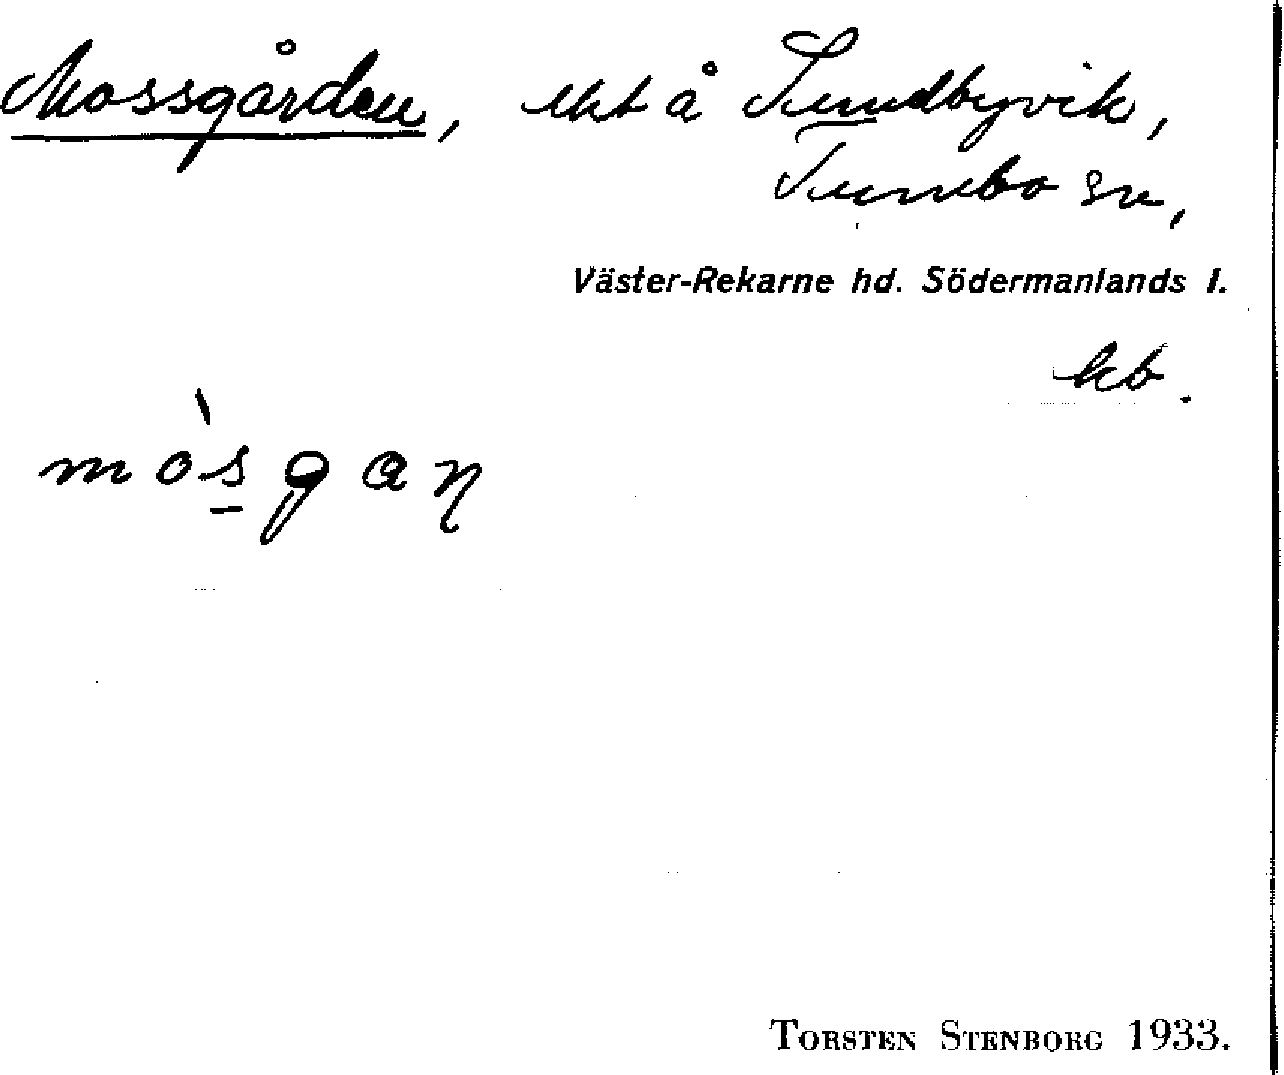 Mossgården, lht å Sundbyvik,
Tumbo sn,
Väster-Rekarne hd. Södermanlands l.
kb.
mòs̠gaɳ
TORSTEN STENBORG 1933.